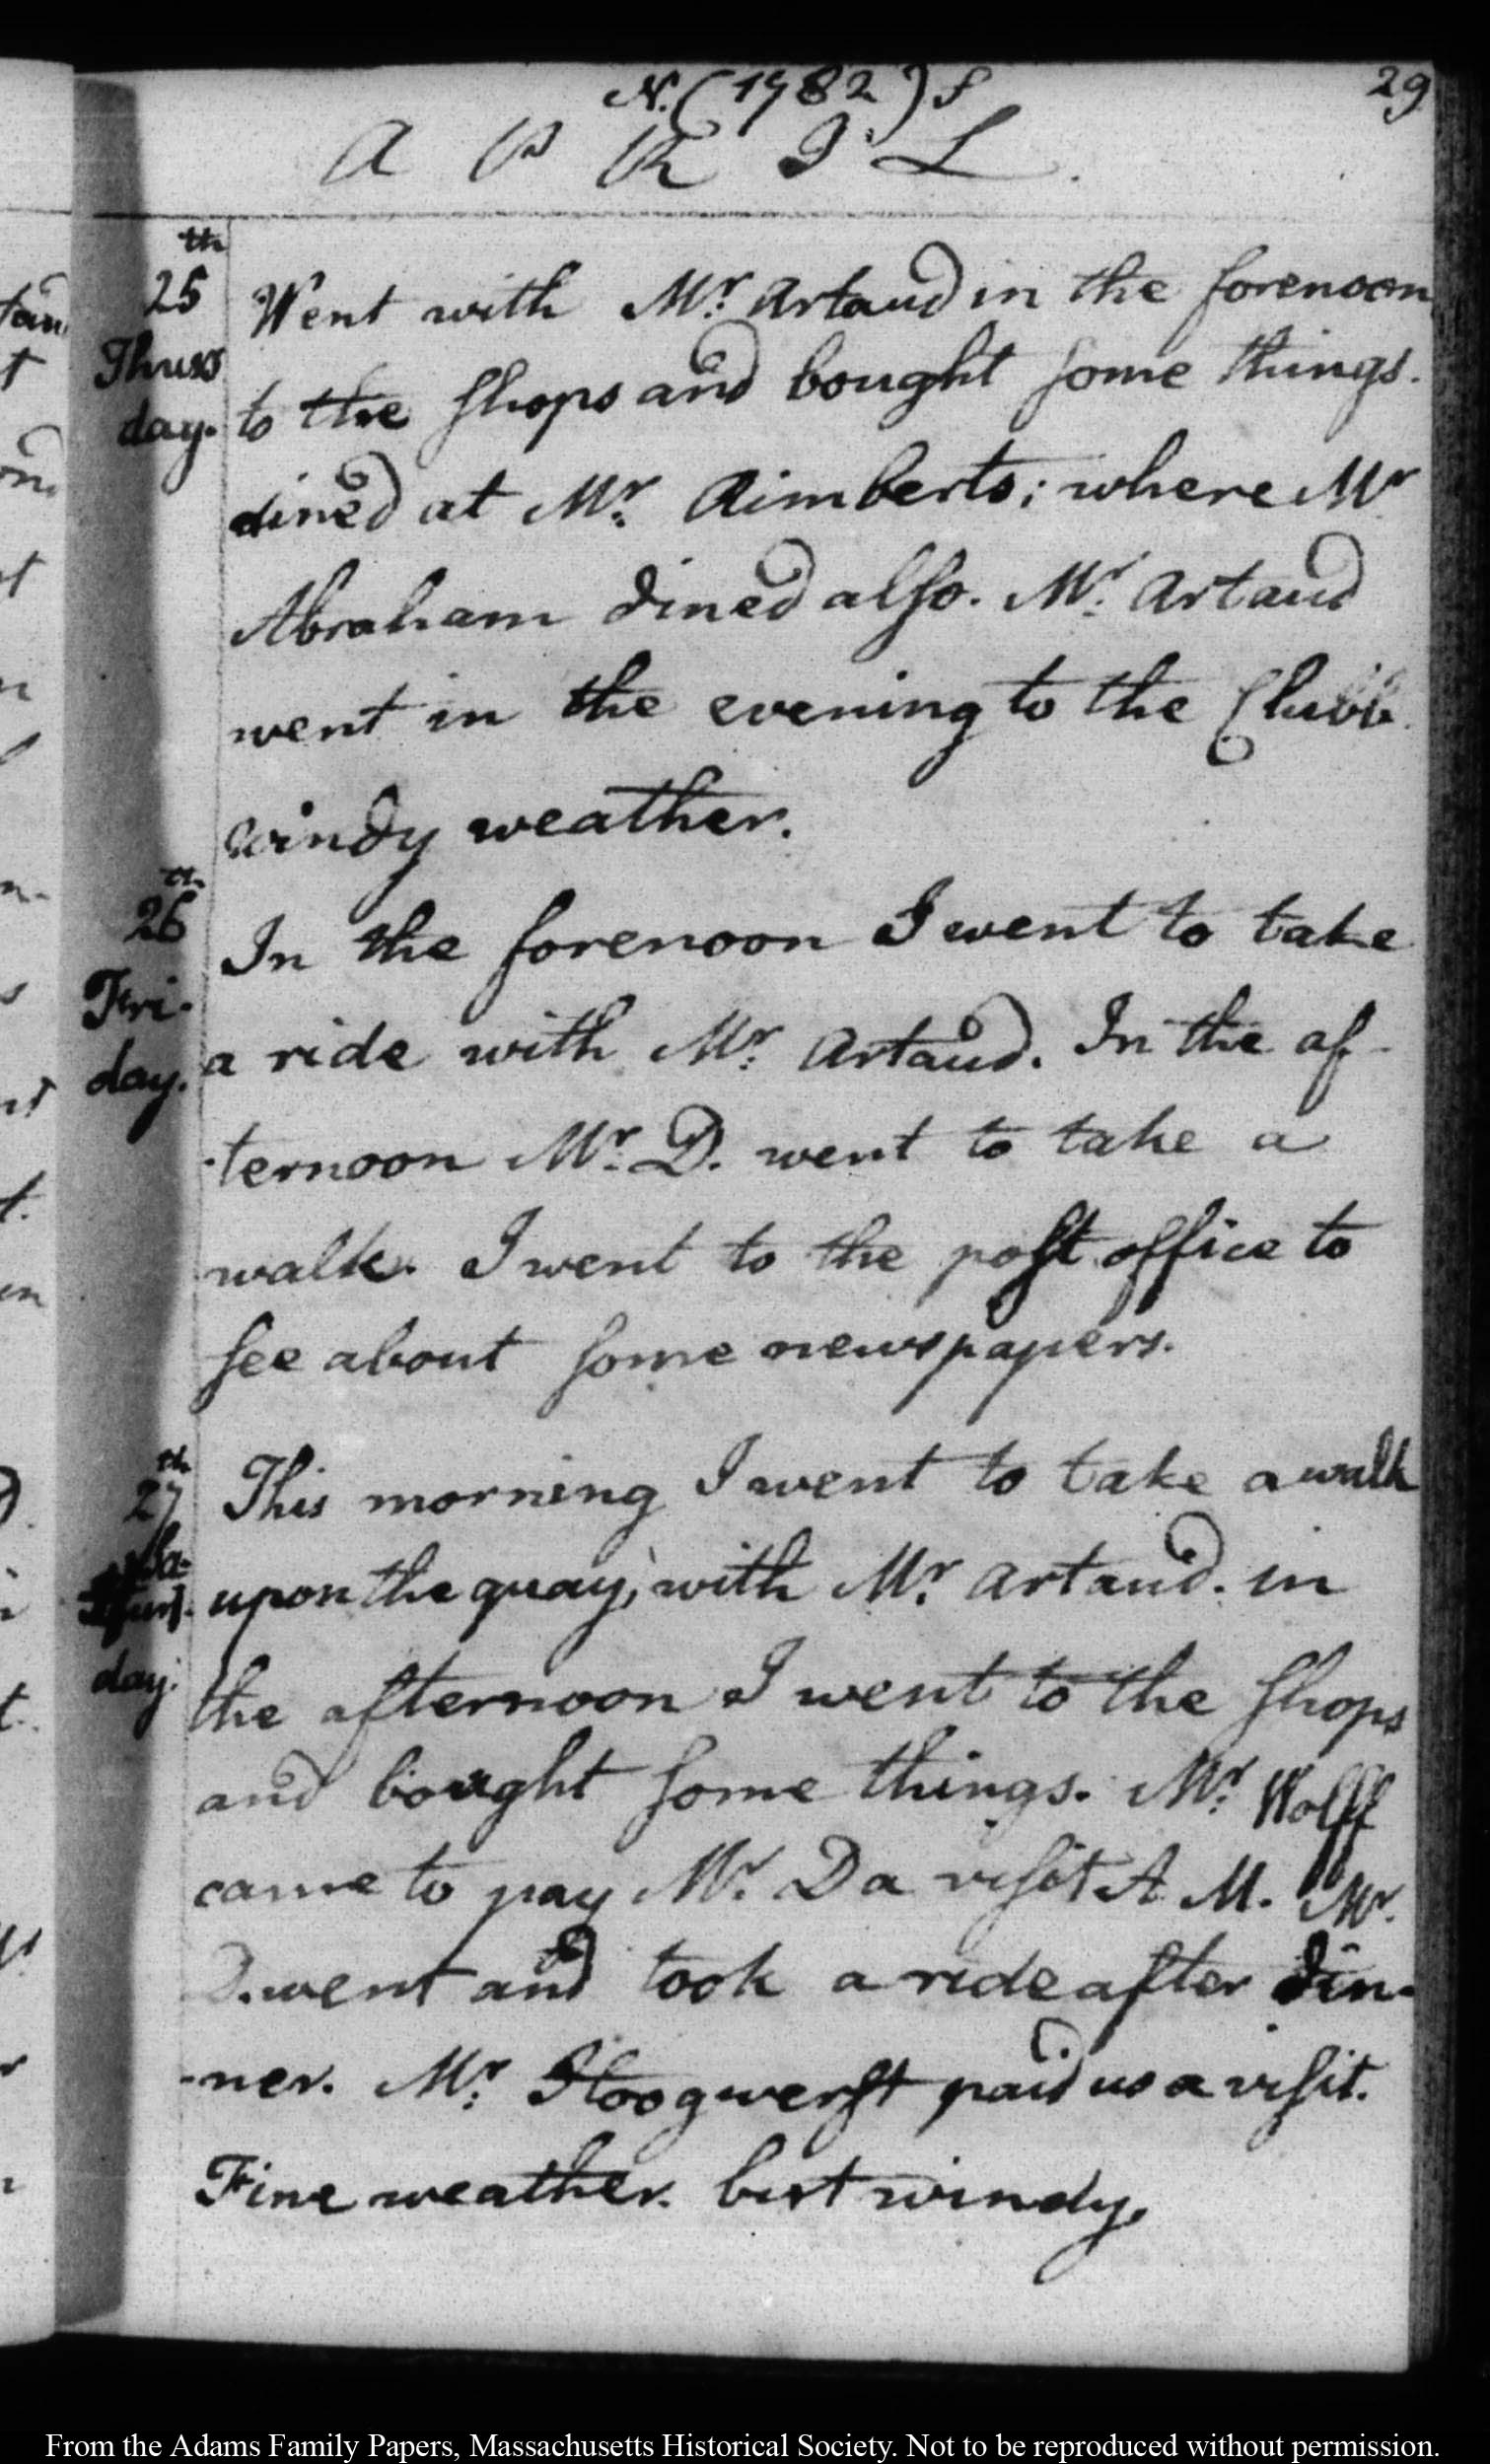 N. (1782) S
29
APRIL.
25th
Thurs
day.
Went with Mr. Artaud in the forenoon
to the shops and bought some things.
dined at Mr. Rimberts; where Mr
Abraham dined also. Mr. Artaud
went in the evening to the Clubb
windy weather.
26th
Fri-
day.
In the forenoon I went to take
a ride with Mr. Artaud. In the af-
-ternoon Mr. D. went to take a
walk. I went to the post office to
see about some newspapers.
27th
Sa-
day.
This morning I went to take a walk
upon the quay, with Mr. Artaud. in
the afternoon I went to the shops
and bought some things. Mr. Wolff
came to pay Mr. D a visit A M. Mr.
D. went and took a ride after din-
-ner. Mr. Hoogwerft paid us a visit.
Fine weather. but windy.
From the Adams Family Papers, Massachusetts Historical Society. Not to be reproduced without permission.